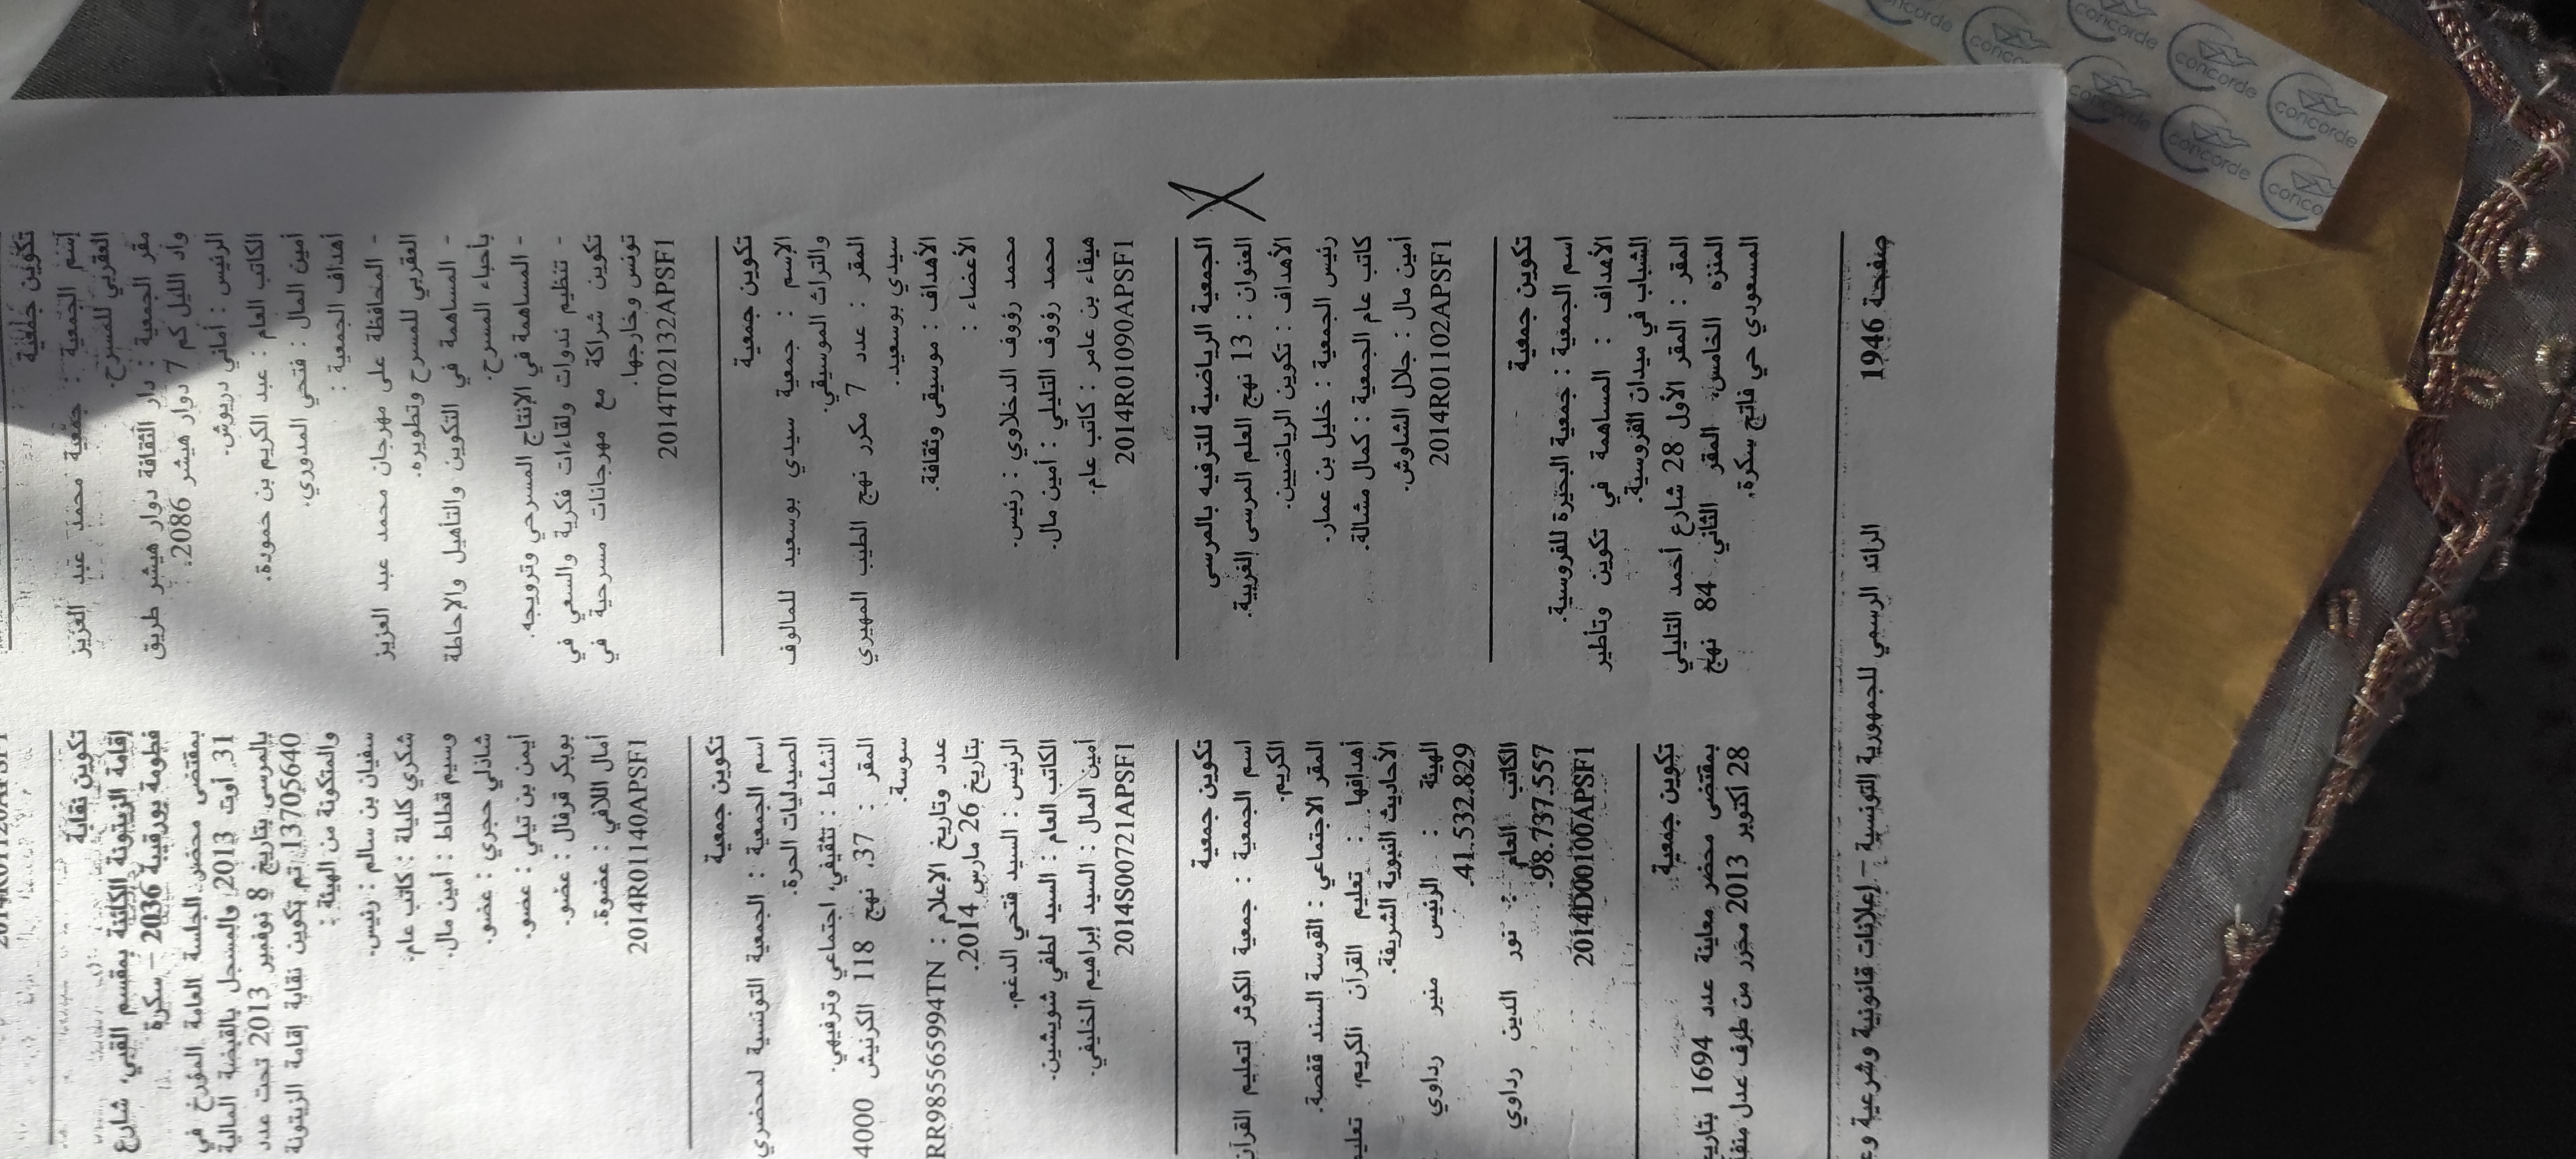 تكوين جمعية
إسم الجمعية : جمعية محمد عبد العزيز
العقربي للمسرح.
مقر الجمعية : دار الثقافة دوار هيشر طريق
واد الليل كم 7 دوار هيشر 2086.
الرئيس : أماني دريوش.
الكاتب العام : عبد الكريم بن حمودة.
أمين المال : فتحي المدوري.
أهداف الجمعية :
- المحافظة على مهرجان محمد عبد العزيز
العقربي للمسرح وتطويره.
- المساهمة في التكوين والتأهيل والإحاطة
بأحباء المسرح.
- المساهمة في الإنتاج المسرحي وترويجه.
- تنظيم ندوات ولقاءات فكرية والسعي في
تكوين شراكة مع مهرجانات مسرحية في
تونس وخارجها.
2014T02132APSF1
تكوين جمعية
الإسم : جمعية سيدي بوسعيد للمالوف
والتراث الموسيقي.
المقر : عدد 7 مكرر نهج الطيب المهيري
سيدي بوسعيد.
الأهداف : موسيقى وثقافة.
الأعضاء :
محمد رؤوف الدخلاوي : رئيس.
محمد رؤوف التليلي : أمين مال.
هيفاء بن عامر : كاتب عام.
2014R01090APSF1
الجمعية الرياضية للترفيه بالمرسى
العنوان : 13 نهج العلم المرسى الغربية.
الأهداف : تكوين الرياضيين.
رئيس الجمعية : خليل بن عمار.
كاتب عام الجمعية : كمال مشالة.
أمين مال : جلال الشاوش.
2014R01102APSF1
تكوين جمعية
اسم الجمعية : جمعية البحيرة للفروسية.
الأهداف : المساهمة في تكوين وتأطير
الشباب في ميدان الفروسية.
المقر : المقر الأول 28 شارع أحمد التليلي
المنزه الخامس، المقر الثاني 84 نهج
المسعودي حي فاتح سكرة.
تكوين نقابة
إقامة الزيتونة الكائنة بمقسم القبي، شارع
فطومة بورقيبة 2036 – سكرة
بمقتضى محضر الجلسة العامة المؤرخ في
31 أوت 2013 والمسجل بالقبضة المالية
بالمرسى بتاريخ 8 نوفمبر 2013 تحت عدد
13705640 تم تكوين نقابة إقامة الزيتونة
والمتكونة من الهيئة :
سفيان بن سالم : رئيس.
شكري كليلة : كاتب عام.
وسيم قطاط : أمين مال.
شاذلي حجري : عضو.
أيمن بن تيلي : عضو.
بوبكر قرفال : عضو.
أمال اللافي : عضوة.
2014R01140APSF1
تكوين جمعية
اسم الجمعية : الجمعية التونسية لمحضري
الصيدليات الحرة.
النشاط : تثقيفي، اجتماعي وترفيهي.
المقر : 37، نهج 118 الكرنيش 4000
سوسة.
عدد وتاريخ الإعلام : RR985565994TN
بتاريخ 26 مارس 2014.
الرئيس : السيد فتحي الدغم.
الكاتب العام : السيد لطفي شويشين.
أمين المال : السيد إبراهيم الخليفي.
2014S00721APSF1
تكوين جمعية
اسم الجمعية : جمعية الكوثر لتعليم القرآن
الكريم.
المقر الاجتماعي : القوسة السند قفصة.
أهدافها : تعليم القرآن الكريم، تعليم
الأحاديث النبوية الشريفة.
الهيئة : الرئيس منير رداوي
41.532.829.
الكاتب العام : نور الدين رداوي
98.737.557.
2014D00100APSF1
تكوين جمعية
بمقتضى محضر معاينة عدد 1694 بتاريخ
28 أكتوبر 2013 محرر من طرف عدل
صفحة 1946
الرائد الرسمي للجمهورية التونسية – إعلانات قانونية وشرعية
concorde
concorde
concorde
concorde
concorde
concorde
concorde